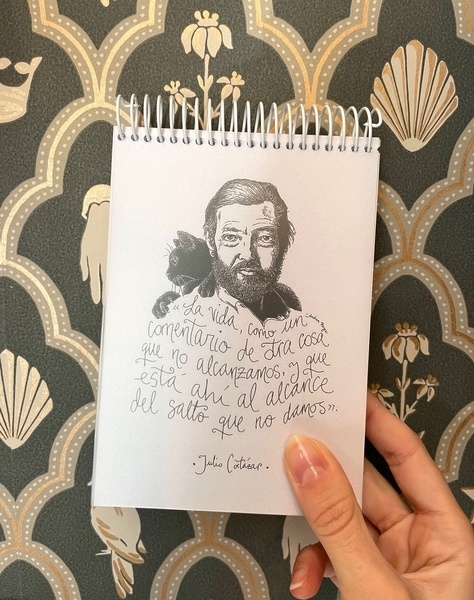 “La vida, como un
comentario de otra cosa
que no alcanzamos, y que
está ahí al alcance
del salto que no damos”.
· Julio Cotázar ·